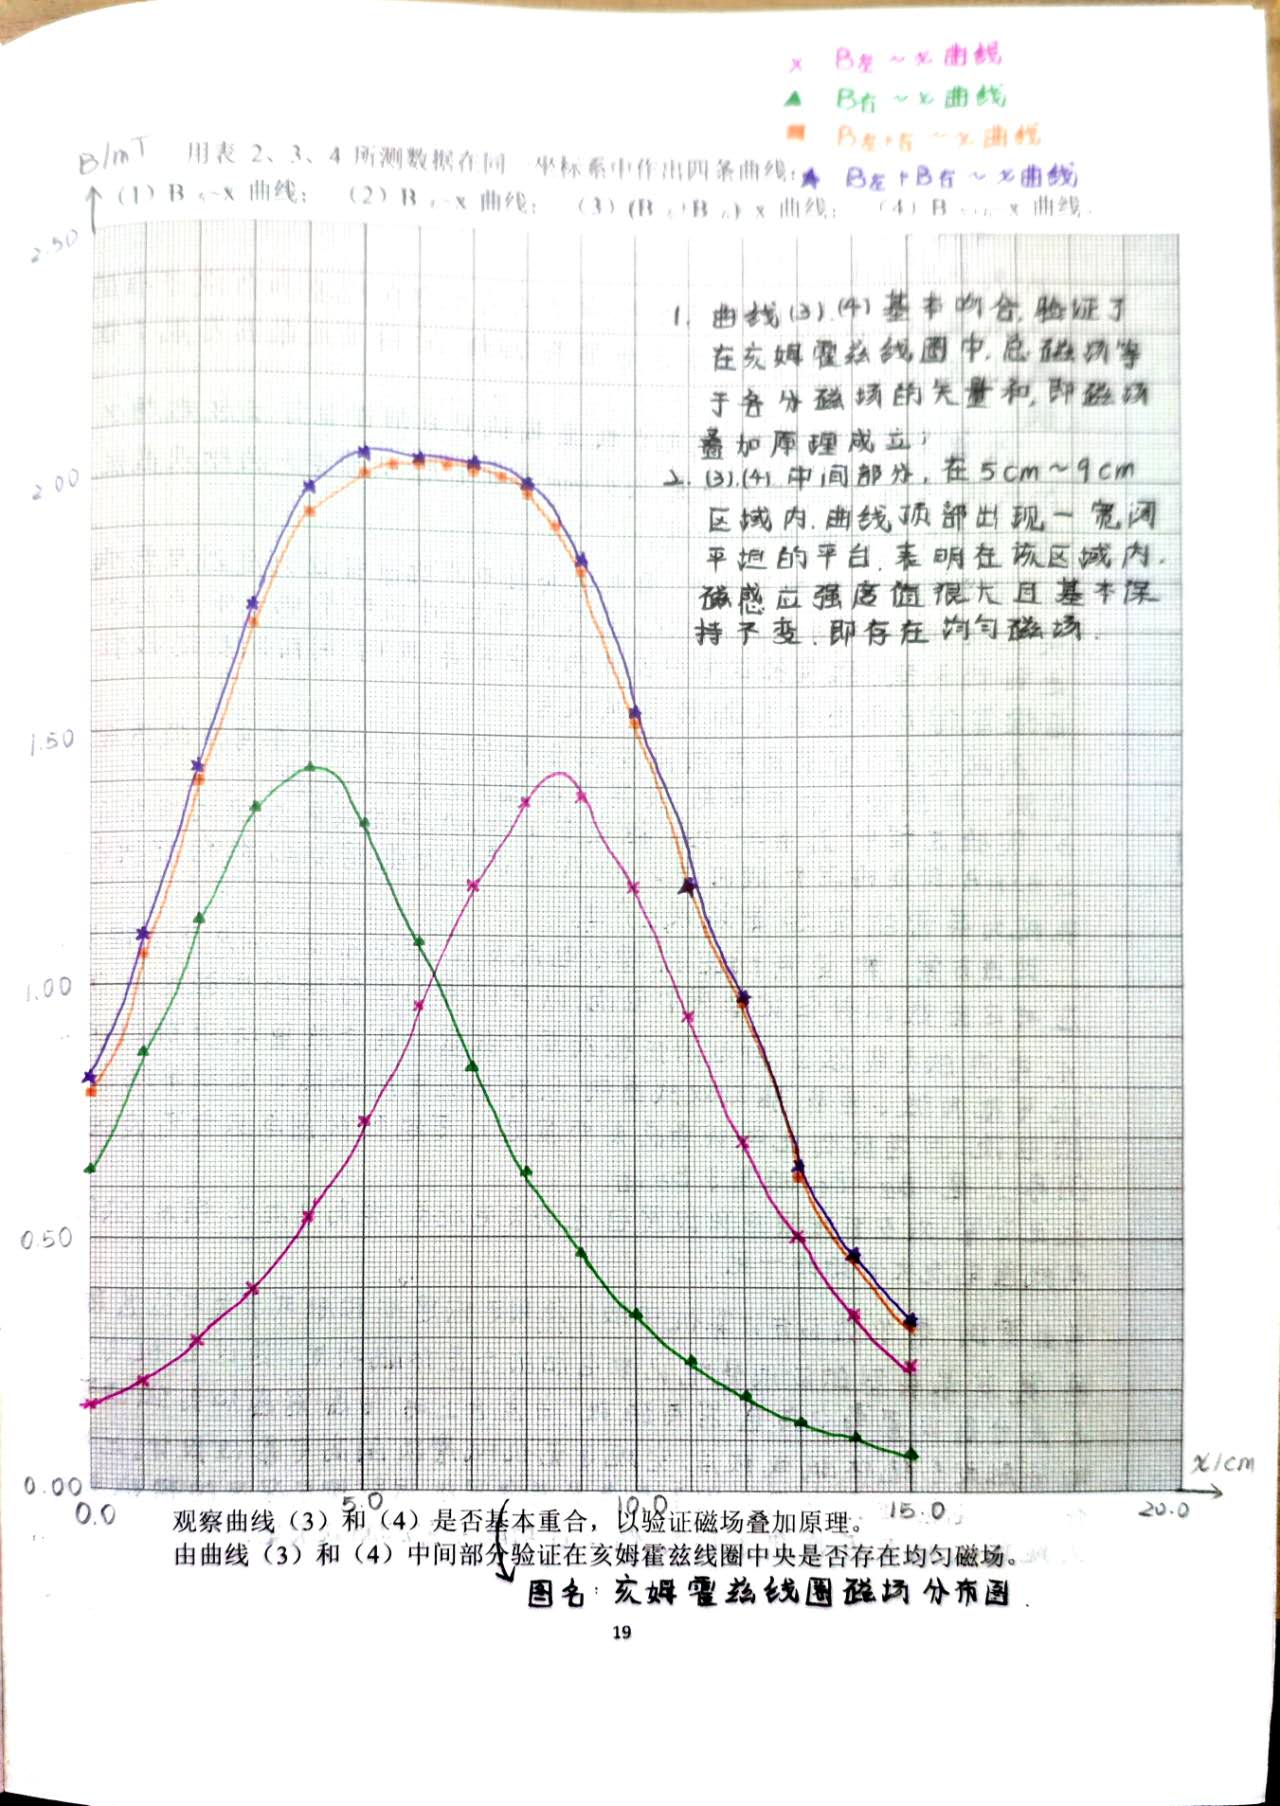 × B左~x曲线
▲ B右~x曲线
■ B左+右~x曲线
★ B左+B右~x曲线
B/mT
用表 2、3、4 所测数据在同一坐标系中作出四条曲线:
(1) B ~x 曲线; (2) B ~x 曲线; (3) (B +B )~x 曲线; (4) B ~x 曲线.
2.50
1. 曲线(3).(4)基本吻合,验证了
在亥姆霍兹线圈中,总磁场等
于各分磁场的矢量和,即磁场
叠加原理成立;
2. (3).(4)中间部分,在5cm~9cm
区域内,曲线顶部出现一宽阔
平坦的平台,表明在该区域内,
磁感应强度值很大且基本保
持不变,即存在均匀磁场.
2.00
1.50
1.00
0.50
0.00
x/cm
0.0 5.0 10.0 15.0 20.0
观察曲线(3)和(4)是否基本重合,以验证磁场叠加原理。
由曲线(3)和(4)中间部分验证在亥姆霍兹线圈中央是否存在均匀磁场。
图名:亥姆霍兹线圈磁场分布图.
19